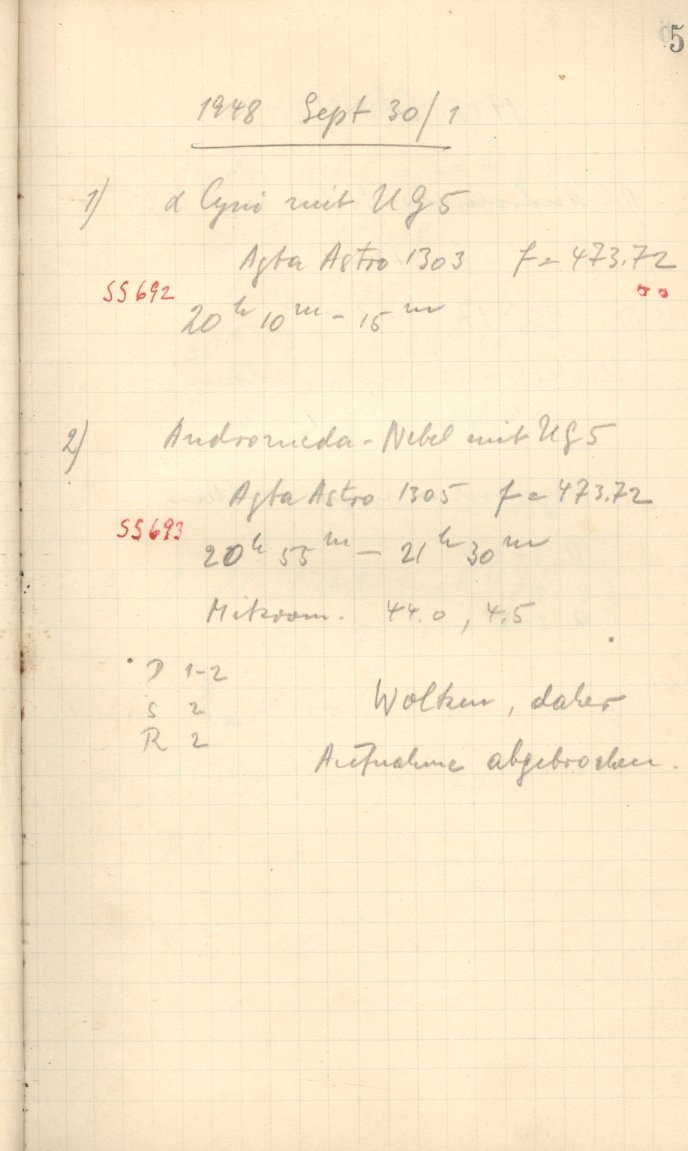 5
1948 Sept 30/1
1) α Cygni mit UG5
Agfa Astro 1303 f = 473.72
SS692
20h 10m - 15m
2) Andromeda-Nebel mit UG5
Agfa Astro 1305 f = 473.72
SS693
20h 55m — 21h 30m
Mikrom. 44.0, 4.5
D 1-2
S 2
R 2
Wolken, daher
Aufnahme abgebrochen.